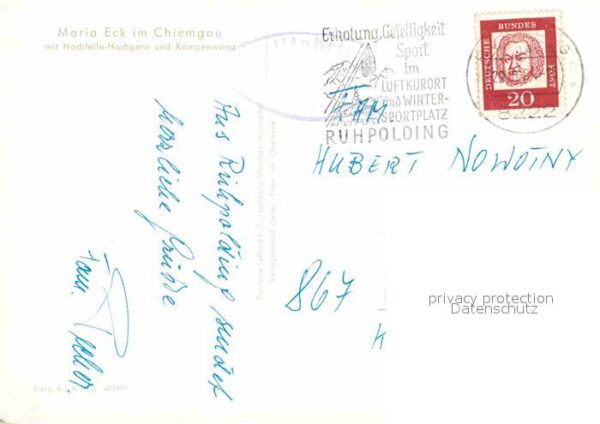 Maria Eck im Chiemgau
mit Hochfelln-Hochgern und Kampenwand
Erholung, Geselligkeit
Sport
im
LUFTKURORT
und WINTER-
SPORTPLATZ
RUHPOLDING
DEUTSCHE BUNDESPOST
20
8222
FAM
HUBERT NOWOTNY
867
K
privacy protection
Datenschutz
Aus Ruhpolding sendet
herzliche Grüsse
Fam.